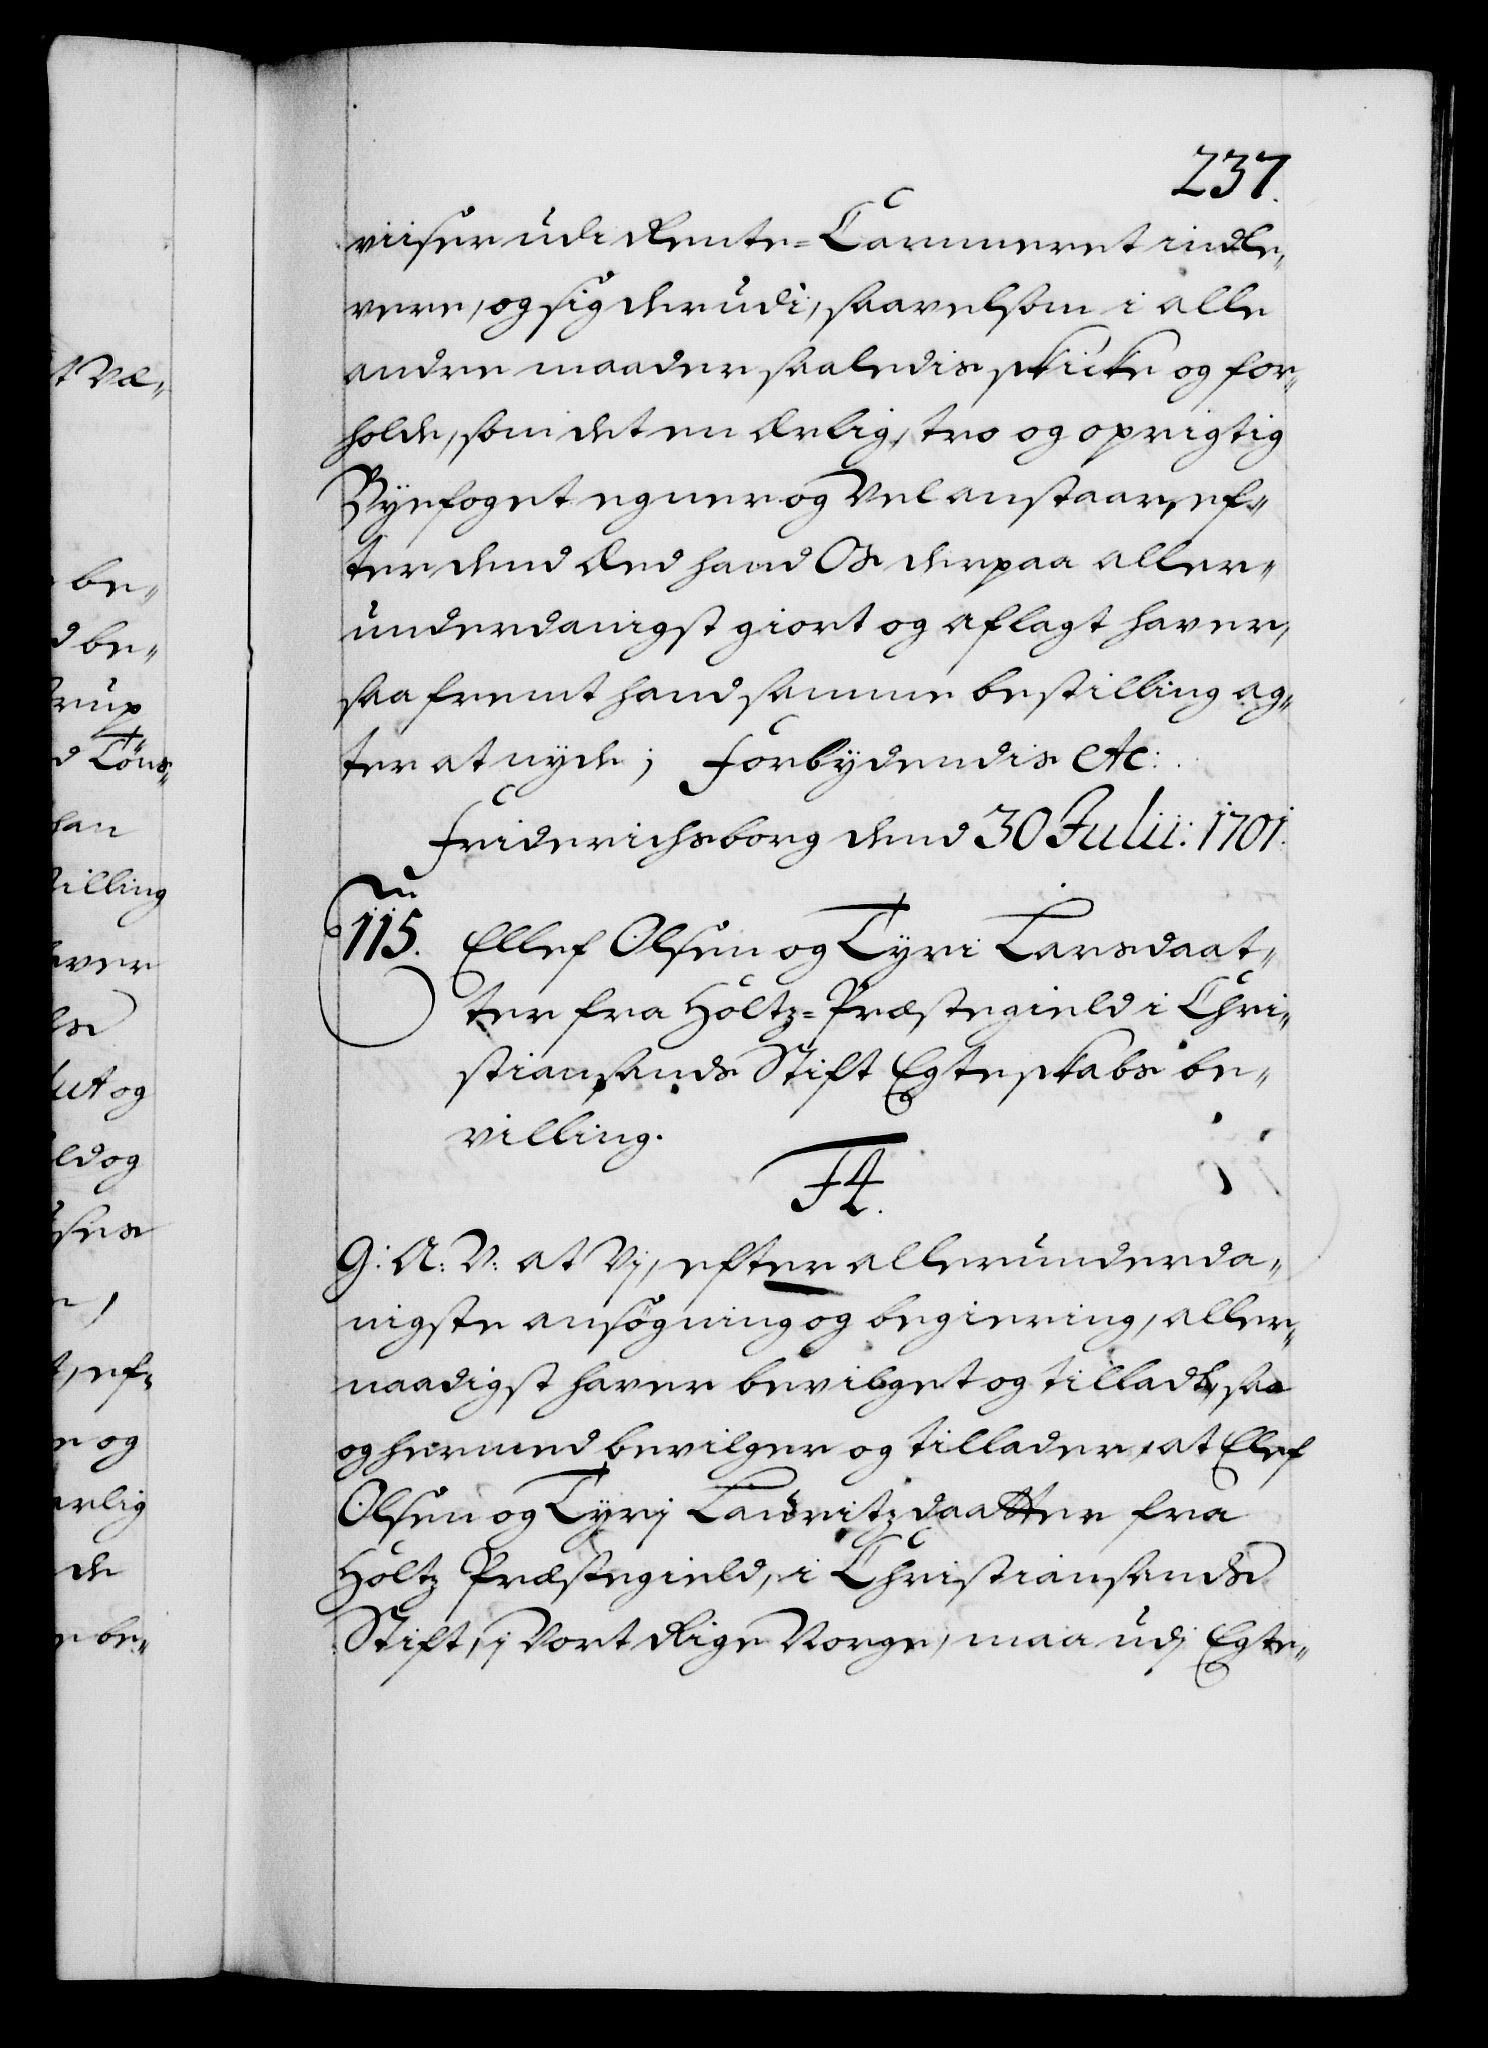 237.
viiser udi Rente-Cammeret indle„
vere, og sig derudi, saavelsom i alle
andre maader saaledis skicke og for„
holde, som det en ærlig, tro og oprigtig
Byefoget egner og vel anstaar, ef„
ter dend Æed hand Os derpaa aller„
underdanigst giort og aflagt haver,
saafremt hand samme bestilling ag„
ter at nyde; Forbydendis etc:
Friderichsborg dend 30 Julii: 1701.
115. Ellef Olsen og Tyri Larsdaat„
ter fra Holtz-Præstegield i Chri„
stiansands Stift Egteskabs be„
villing.
F4.
G: A: V: at Vj, efter allerunderda„
nigste ansøgning og begiering, aller„
naadigst haver bevilget og tilladt, saa
og hermed bevilger og tillader, at Elef
Olsen og Tyrj Lauritzdaatter fra
Holtz Præstegield, i Christiansands
Stift, i Vort Rige Norge, maa udj Egte„
t Væ„
be„
d be„
drup
d Töns„
han
tilling
aver
hs
lut og
ld og
, ef„
e og
ærlig
de
e be„